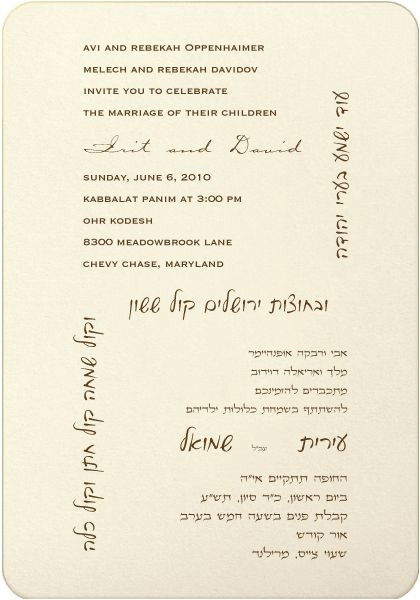 AVI AND REBEKAH OPPENHAIMER
MELECH AND REBEKAH DAVIDOV
INVITE YOU TO CELEBRATE
THE MARRIAGE OF THEIR CHILDREN
Irit and David
SUNDAY, JUNE 6, 2010
KABBALAT PANIM AT 3:00 PM
OHR KODESH
8300 MEADOWBROOK LANE
CHEVY CHASE, MARYLAND
עוד ישמע בערי יהודה
ובחוצות ירושלים קול ששון
וקול שמחה קול חתן וקול כלה
אבי ורבקה אופנהיימר
מלך ואריאלה דוידוב
מתכבדים להזמינכם
להשתתף בשמחת כלולות ילדיהם
עירית עב״ל שמואל
החופה תתקיים אי״ה
ביום ראשון, כ״ד סיון, תש״ע
קבלת פנים בשעה חמש בערב
אור קודש
שעוי צ׳יס, מרילנד